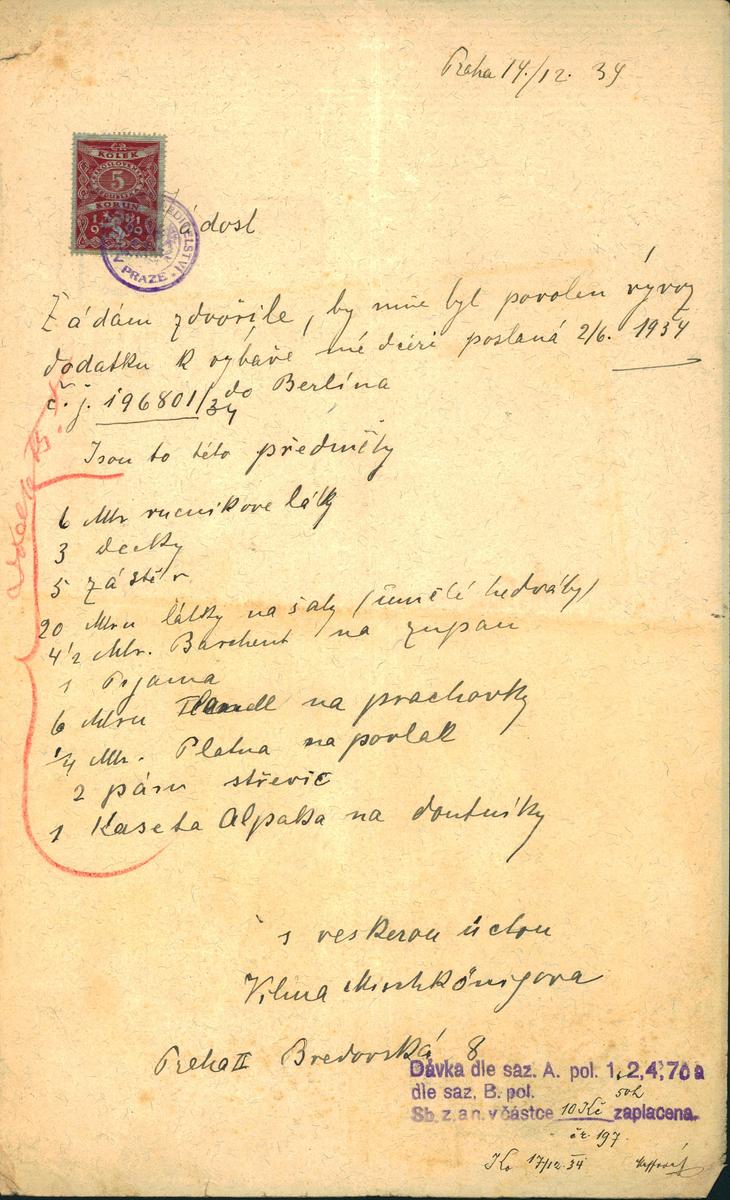 Praha 14/12. 34
KOLEK
5
KORUN
V PRAZE
Žádost
Žádám zdvořile, by mně byl povolen vývoz
dodatku k výbavě mé dceři poslaná 2/6. 1934
č. j. 196801/34 do Berlína
Jsou to této předměty
6 Mtr ručníkove látky
3 decky
5 zástěr
20 Mtru látky na šaty (umělé hedváby)
4 1/2 Mtr. Barchent na župan
1 Pyjama
6 Mtru na prachovky
1/4 Mtr. Platna na povlak
2 páru střevic
1 Kaseta Alpaka na doutníky
s veškerou úctou
Vilma
Praha II Bredovská 8
Dávka dle saz. A. pol. 1, 2,4,7c a
dle saz. B. pol. 50h
Sb. z. a n. v částce 10 Kč zaplacena.
čr. 197.
17/12. 34